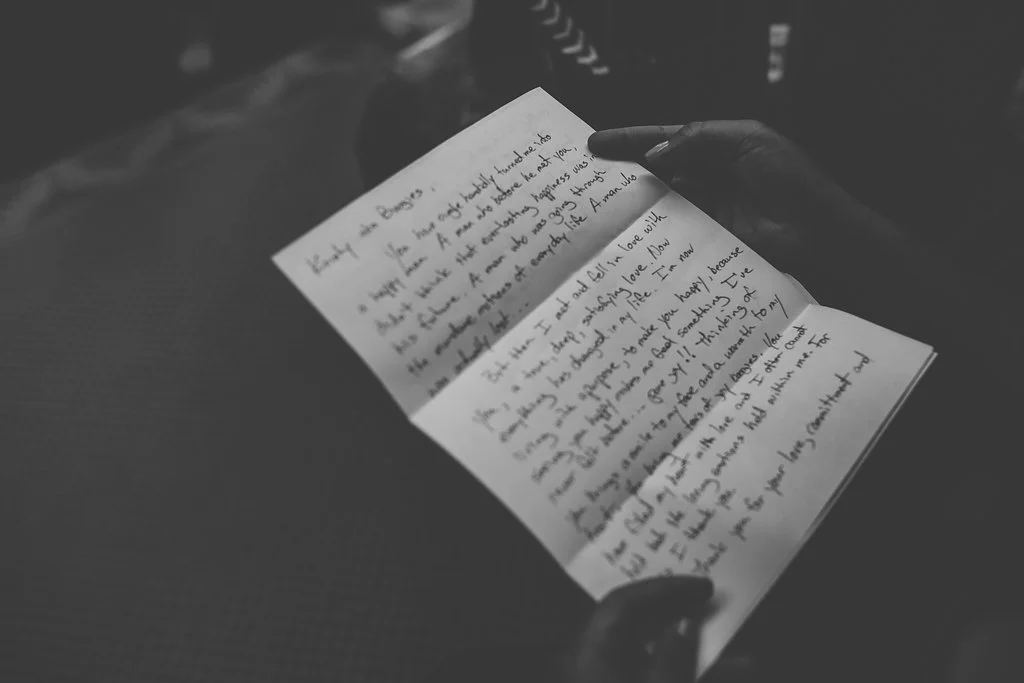 aka Boogies,
You have single handidly turned me into
a happy man. A man who before he met you,
didn't think that everlasting happiness was in
his future. A man who was going through
the motions of everyday life. A man who
was lost...
But then I met and fell in love with
you, a true, deep, satisfying love. Now
everything has changed in my life. I'm now
living with a purpose, to make you happy, because
seeing you happy makes me feel something I've
never felt before... pure joy!! Thinking of
you brings a smile to my face and a warmth to my
tears of joy You
have filled my heart with love and I often cannot
hold back the loving emotions held within me. For
I thank you.
Thank you for your love, committment and